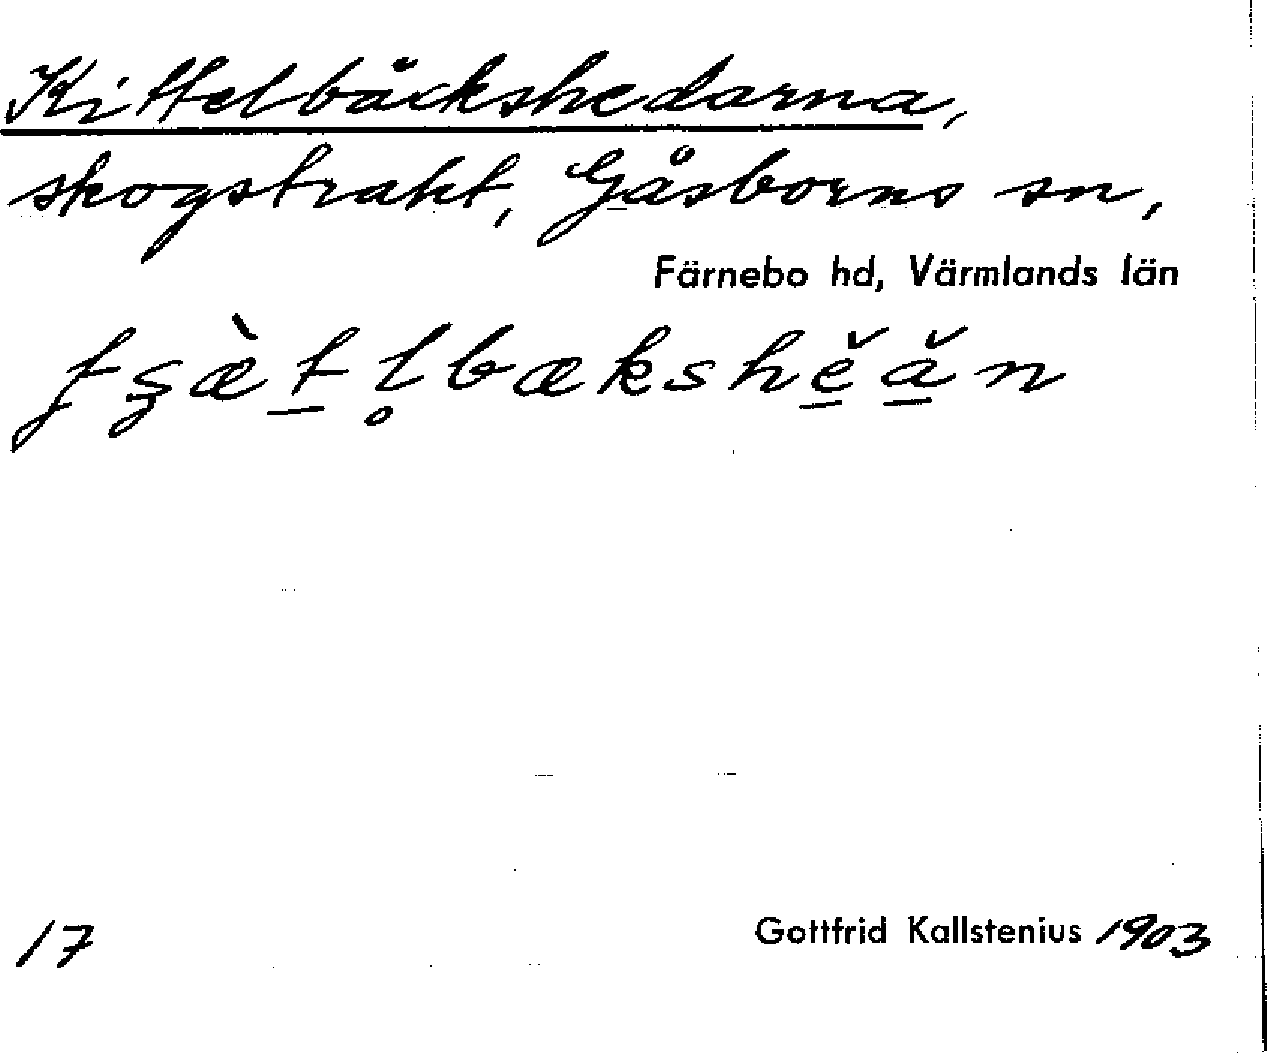 Kittelbäckshedarna,
skogstrakt, Gåsborns sn,
Färnebo hd, Värmlands län
tʂæ̀t̠l̥bækshě̠ǎ̠n
17
Gottfrid Kallstenius 1903